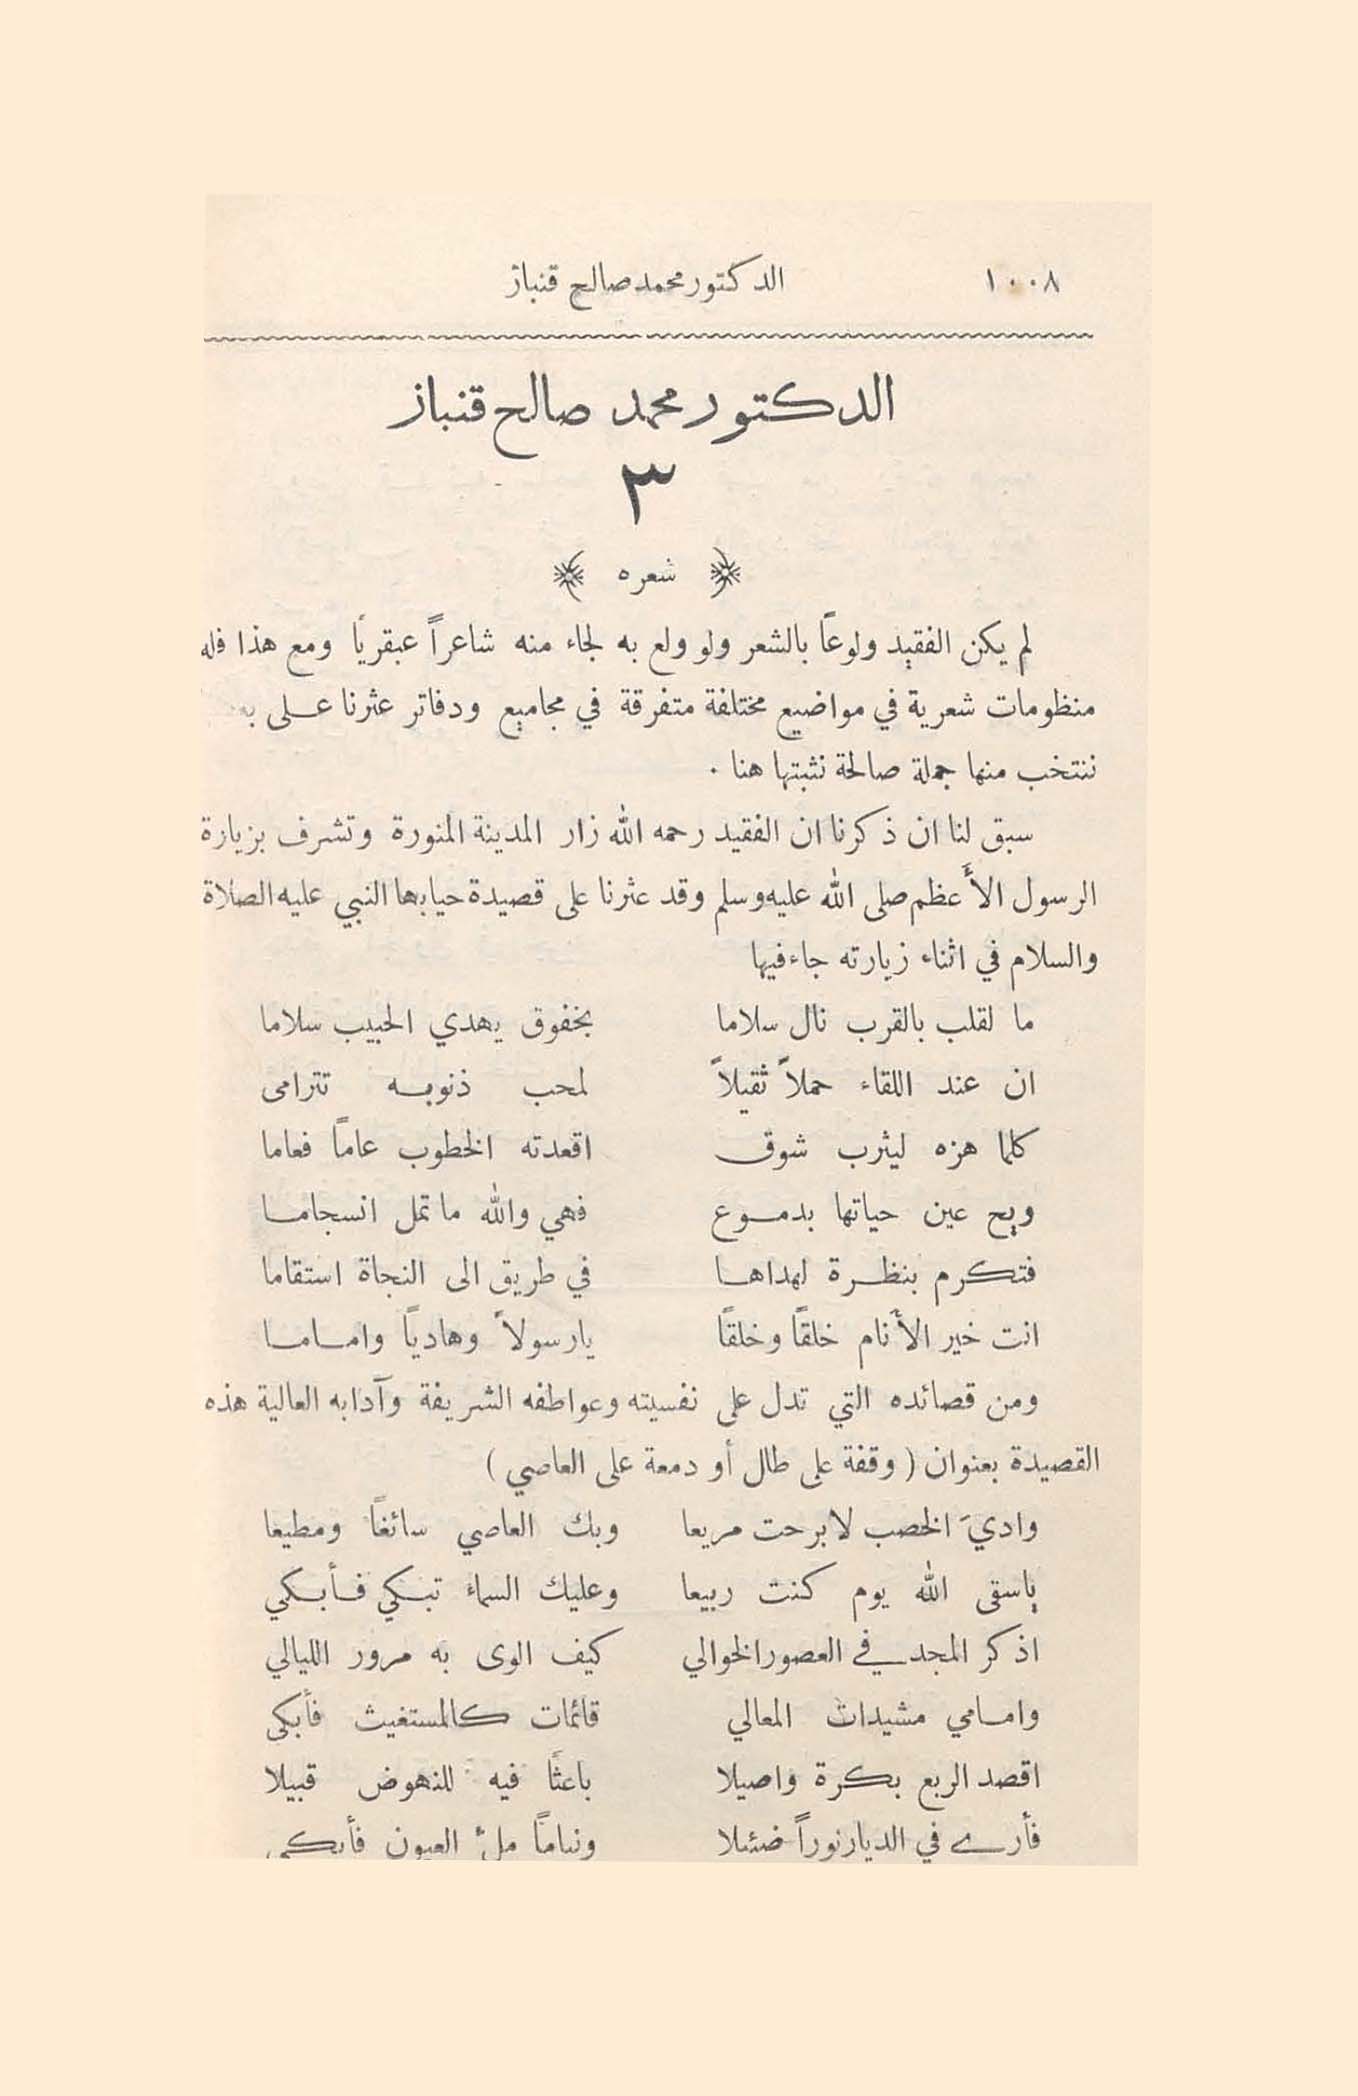 ١٠٠٨ الدكتور محمد صالح قنباز
الدكتور محمد صالح قنباز
٣
﴿ شعره ﴾
لم يكن الفقيد ولوعاً بالشعر ولو ولع به لجاء منه شاعراً عبقرياً ومع هذا فله
منظومات شعرية في مواضيع مختلفة متفرقة في مجاميع ودفاتر عثرنا على
ننتخب منها جملة صالحة نثبتها هنا .
سبق لنا ان ذكرنا ان الفقيد رحمه الله زار المدينة المنورة وتشرف بزيارة
الرسول الأعظم صلى الله عليه وسلم وقد عثرنا على قصيدة حيا بها النبي عليه الصلاة
والسلام في اثناء زيارته جاء فيها
ما لقلب بالقرب نال سلاما بخفوق يهدي الحبيب سلاما
ان عند اللقاء حملاً ثقيلاً لمحب ذنوبه تترامى
كلما هزه ليثرب شوق اقعدته الخطوب عاماً فعاما
ويح عين حياتها بدموع فهي والله ما تمل انسجاما
فتكرم بنظرة لهداها في طريق الى النجاة استقاما
انت خير الأنام خلقاً وخلقاً يارسولاً وهادياً واماما
ومن قصائده التي تدل على نفسيته وعواطفه الشريفة وآدابه العالية هذه
القصيدة بعنوان ( وقفة على طال أو دمعة على العاصي )
واديَ الخصب لا برحت مريعا وبك العاصي سائغاً ومطيعا
ياسقى الله يوم كنت ربيعا وعليك السماء تبكي فأبكي
اذكر المجد في العصور الخوالي كيف الوى به مرور الليالي
وامامي مشيدات المعالي قائمات كالمستغيث فأبكى
اقصد الربع بكرة واصيلا باعثاً فيه للنهوض قبيلا
فأرى في الديار نوراً ضئيلا ونياماً ملئ العيون فأبكي